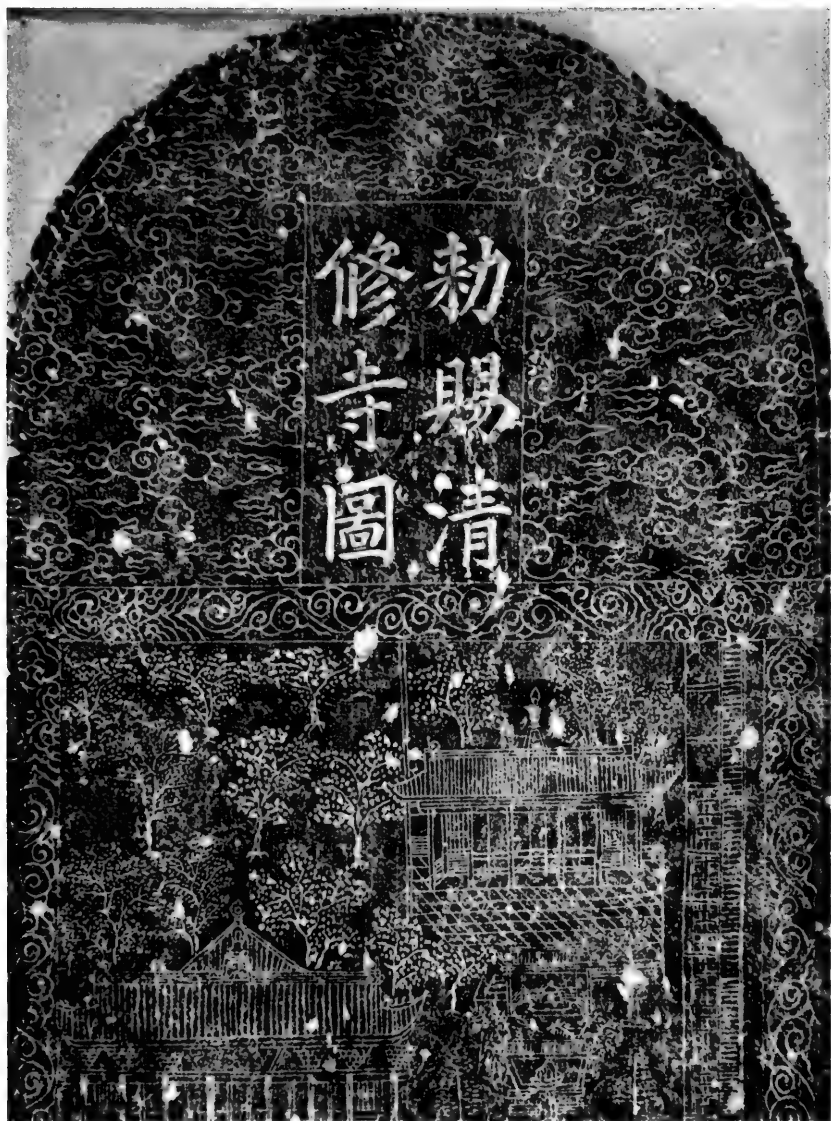 勅賜清
修寺圖